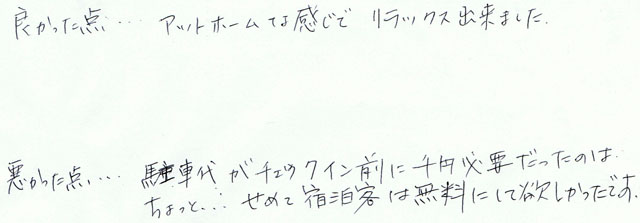 良かった点… アットホームな感じで リラックス出来ました.
悪かった点… 駐車代がチェックイン前に千円必要だったのは
ちょっと... せめて宿泊客は無料にして欲しかったです.